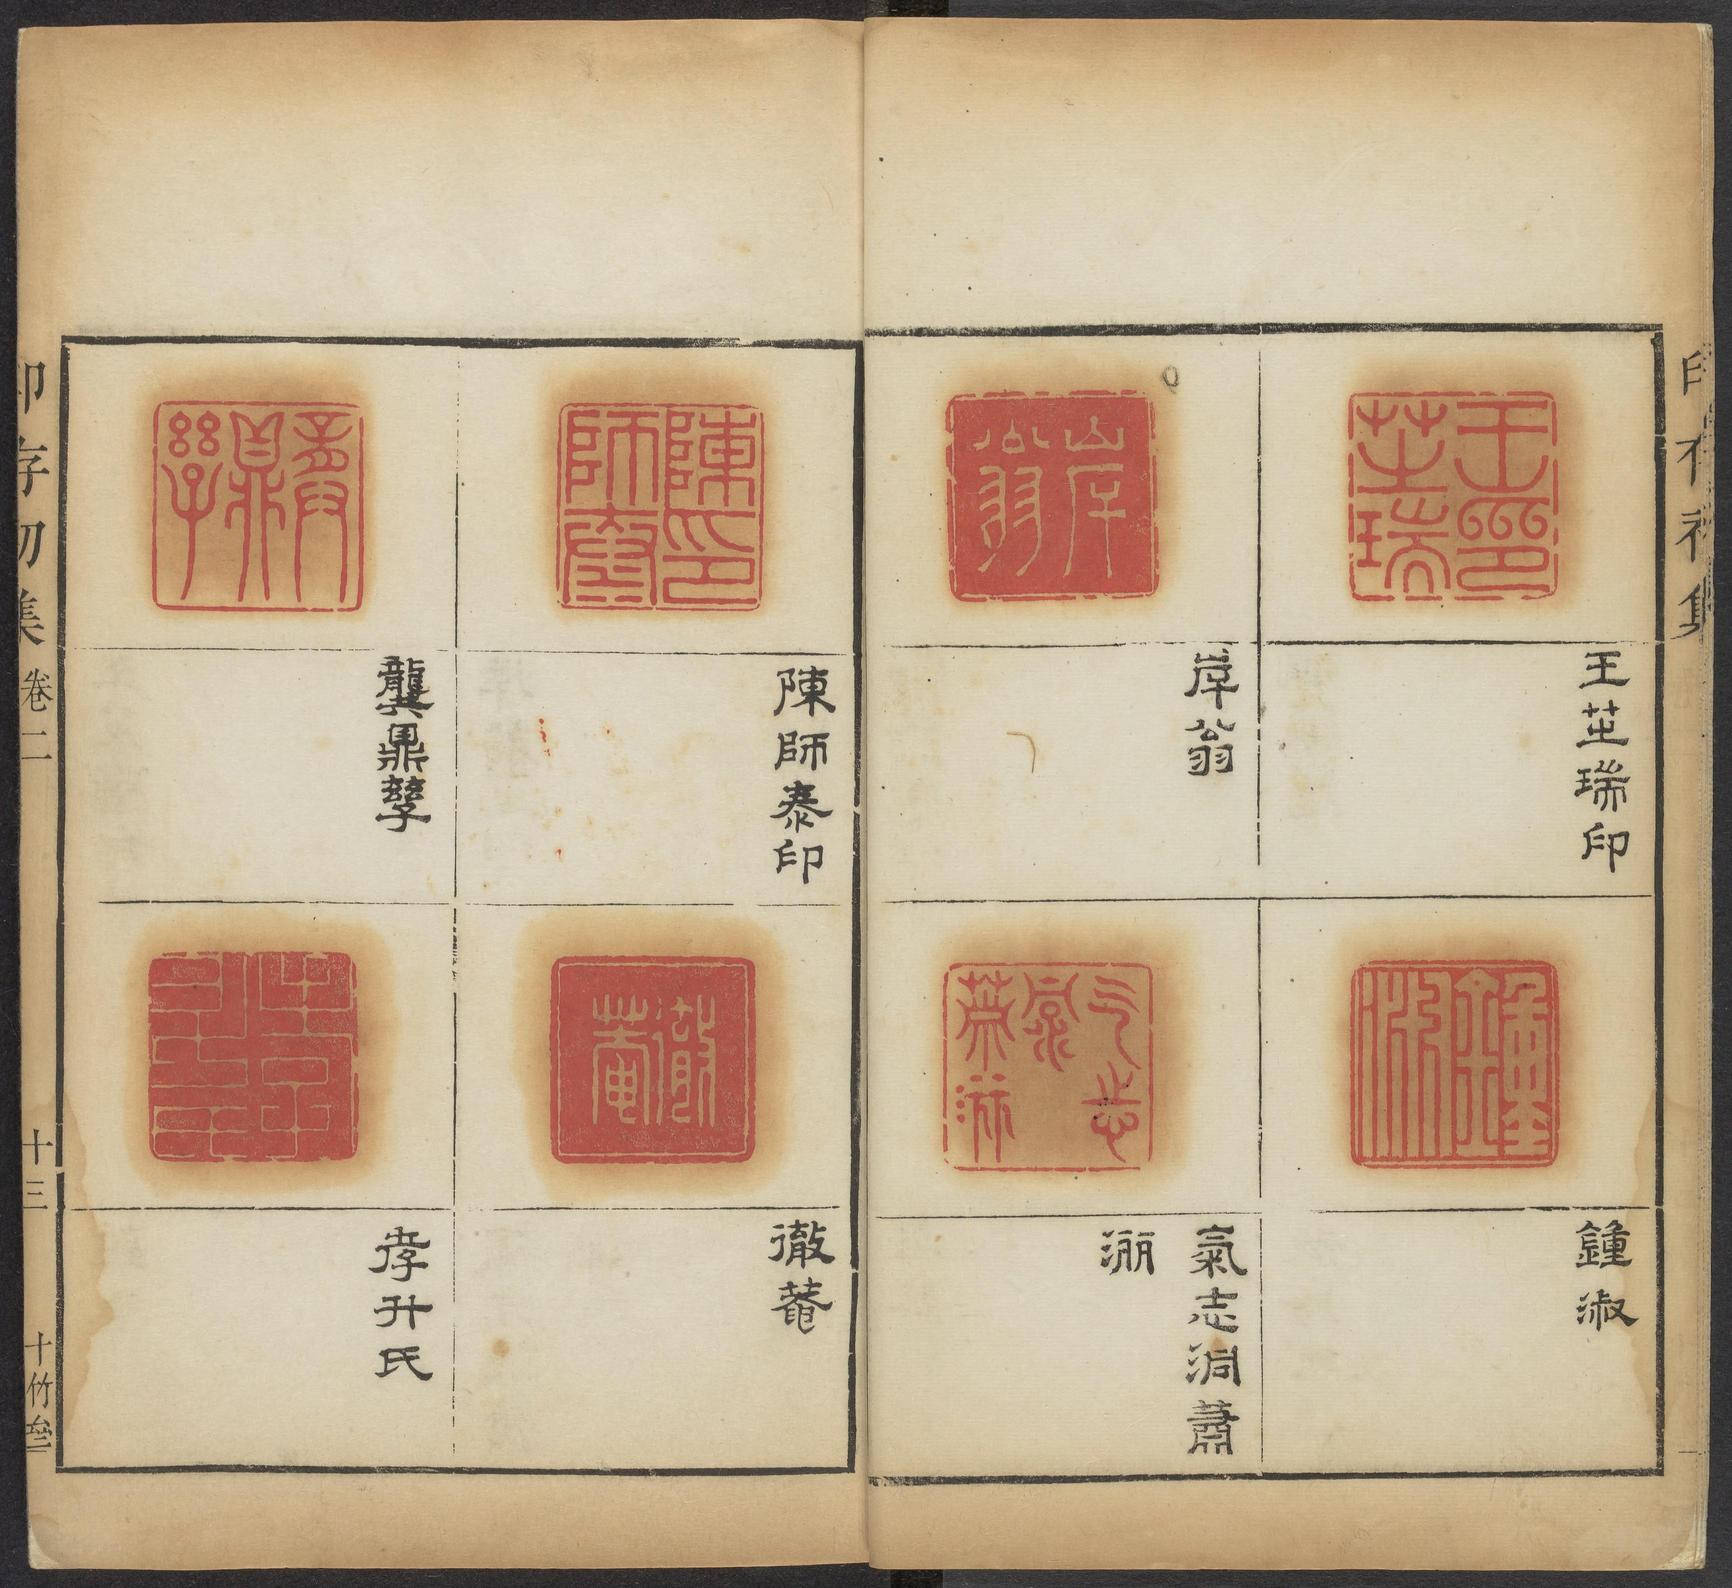 印存初集
王芷瑞印
岸翁
鍾淑
氣志洞蕭
漰
陳師泰印
龔鼎孳
徹菴
孝升氏
印存初集 卷二 十三 十竹齋